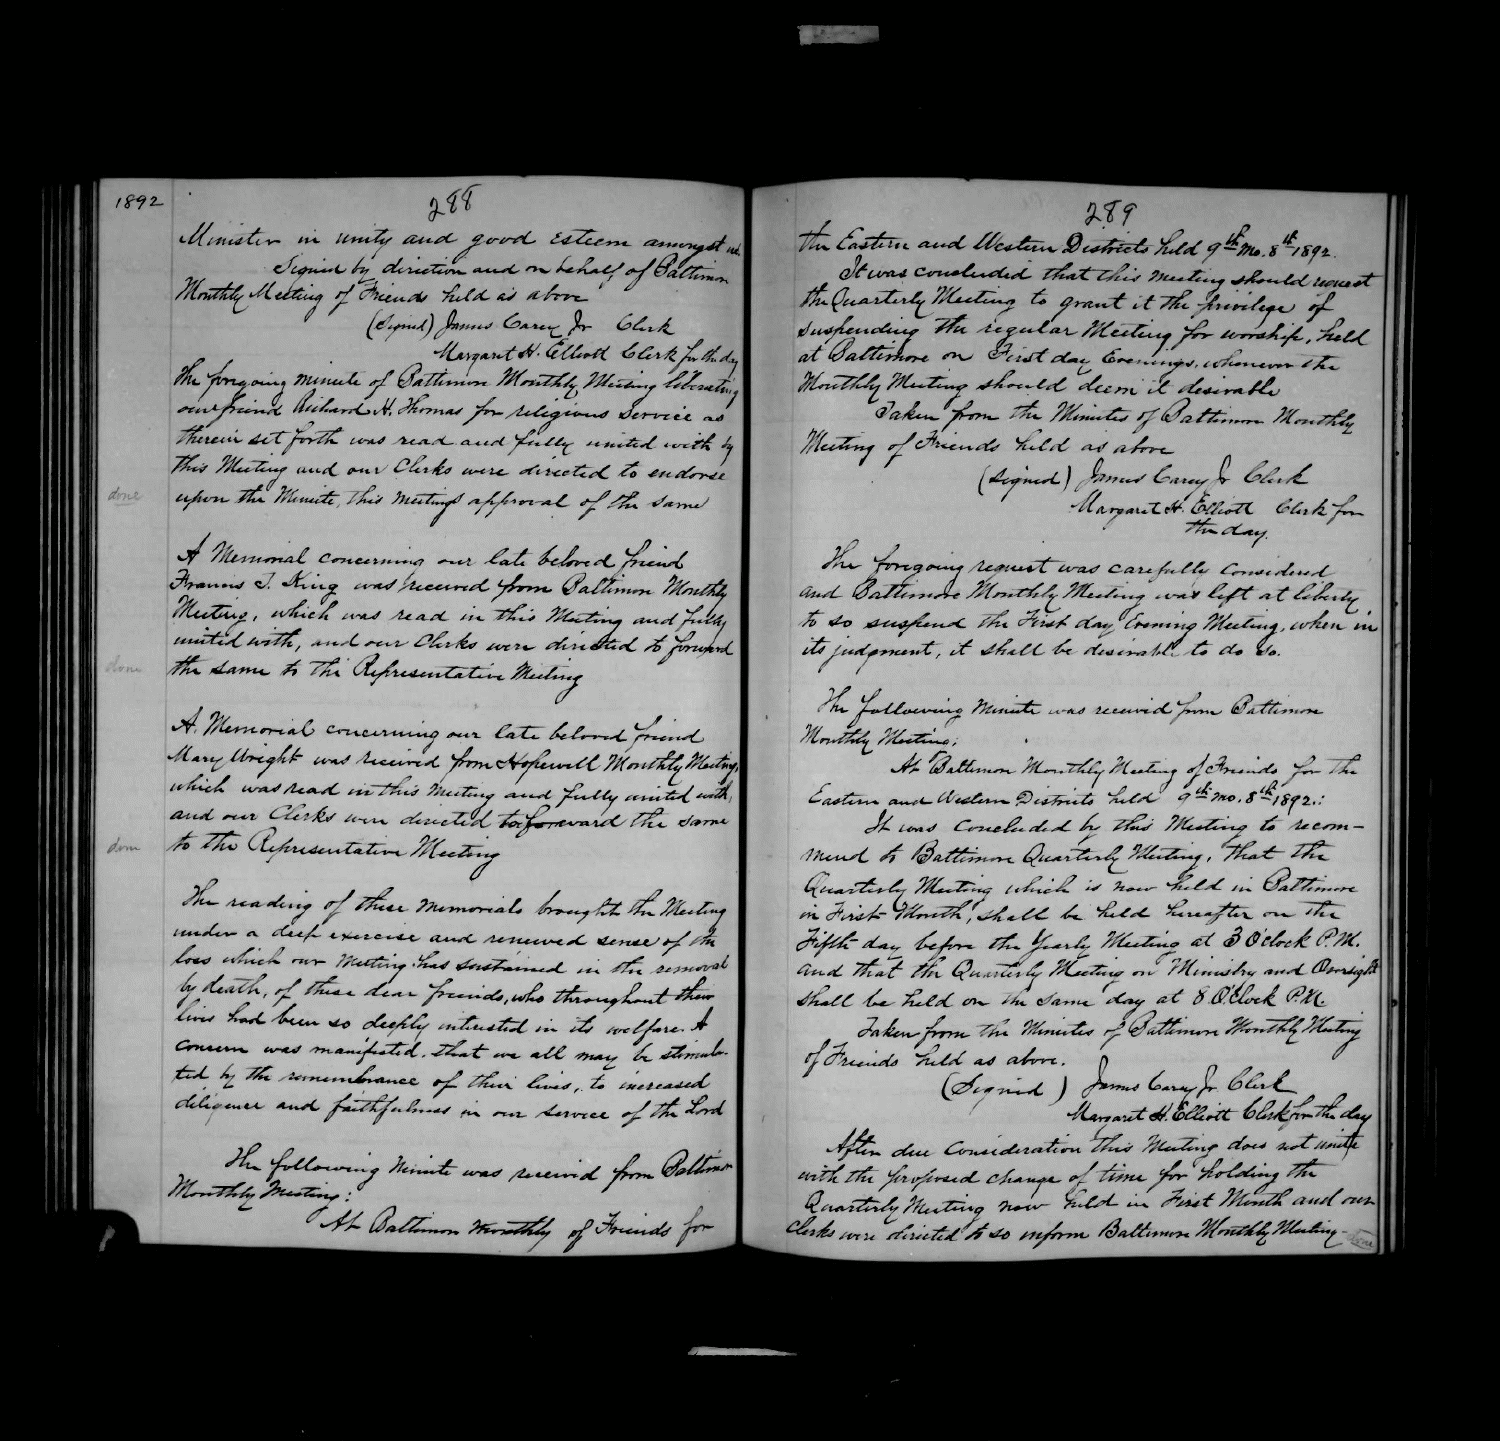 1892
288
Minister in unity and good esteem amongst us.
Signed by direction and on behalf of Baltimore
Monthly Meeting of Friends held as above
(Signed) James Carey Jr Clerk
Margaret H. Elliott Clerk for the day
The foregoing minute of Baltimore Monthly Meeting liberating
our friend Richard H. Thomas for religious service as
therein set forth was read and fully united with by
this Meeting and our Clerks were directed to endorse
done
upon the Minute, this meetings approval of the same
A Memorial concerning our late beloved friend
Francis T. King was received from Baltimore Monthly
Meeting, which was read in this Meeting and fully
united with, and our Clerks were directed to forward
done
the same to the Representative Meeting
A. Memorial concerning our late beloved friend
Mary Wright was received from Hopewell Monthly Meeting,
which was read in this Meeting and fully united with,
and our Clerks were directed to forward the same
done
to the Representative Meeting
The reading of these memorials brought the Meeting
under a deep exercise and renewed sense of the
loss which our Meeting has sustained in the removal
by death, of these dear friends, who throughout their
lives had been so deeply interested in its welfare. A
concern was manifested, that we all may be stimula-
ted by the remembrance of their lives, to increased
diligence and faithfulness in our service of the Lord
The following minute was received from Baltimore
Monthly Meeting:
At Baltimore Monthly of Friends for
289
the Eastern and Western Districts held 9th Mo. 8th 1892.
It was concluded that this meeting should request
the Quarterly Meeting to grant it the privilege of
suspending the regular Meeting for worship, held
at Baltimore on First day Evenings, whenever the
Monthly Meeting should deem it desirable
Taken from the Minutes of Baltimore Monthly
Meeting of Friends held as above
(Signed) James Carey Jr Clerk
Margaret H. Elliott Clerk for
the day.
The foregoing request was carefully considered
and Baltimore Monthly Meeting was left at liberty
to so suspend the First day Evening Meeting, when in
its judgment, it shall be desirable to do so.
The following minute was received from Baltimore
Monthly Meeting;
At Baltimore Monthly Meeting of Friends for the
Eastern and Western Districts held 9th mo. 8th 1892.:
It was concluded by this Meeting to recom-
mend to Baltimore Quarterly Meeting, that the
Quarterly Meeting which is now held in Baltimore
in First Month, shall be held hereafter on the
Fifth day before the Yearly Meeting at 3 O'clock P.M.
and that the Quarterly Meeting on Ministry and Oversight
shall be held on the same day at 8 O'Clock P.M.
Taken from the Minutes of Baltimore Monthly Meeting
of Friends held as above.
(Signed) James Carey Jr Clerk
Margaret H. Elliott Clerk for the day
After due consideration this Meeting does not unite
with the proposed change of time for holding the
Quarterly Meeting now held in First Month and our
Clerks were directed to so inform Baltimore Monthly Meeting - done